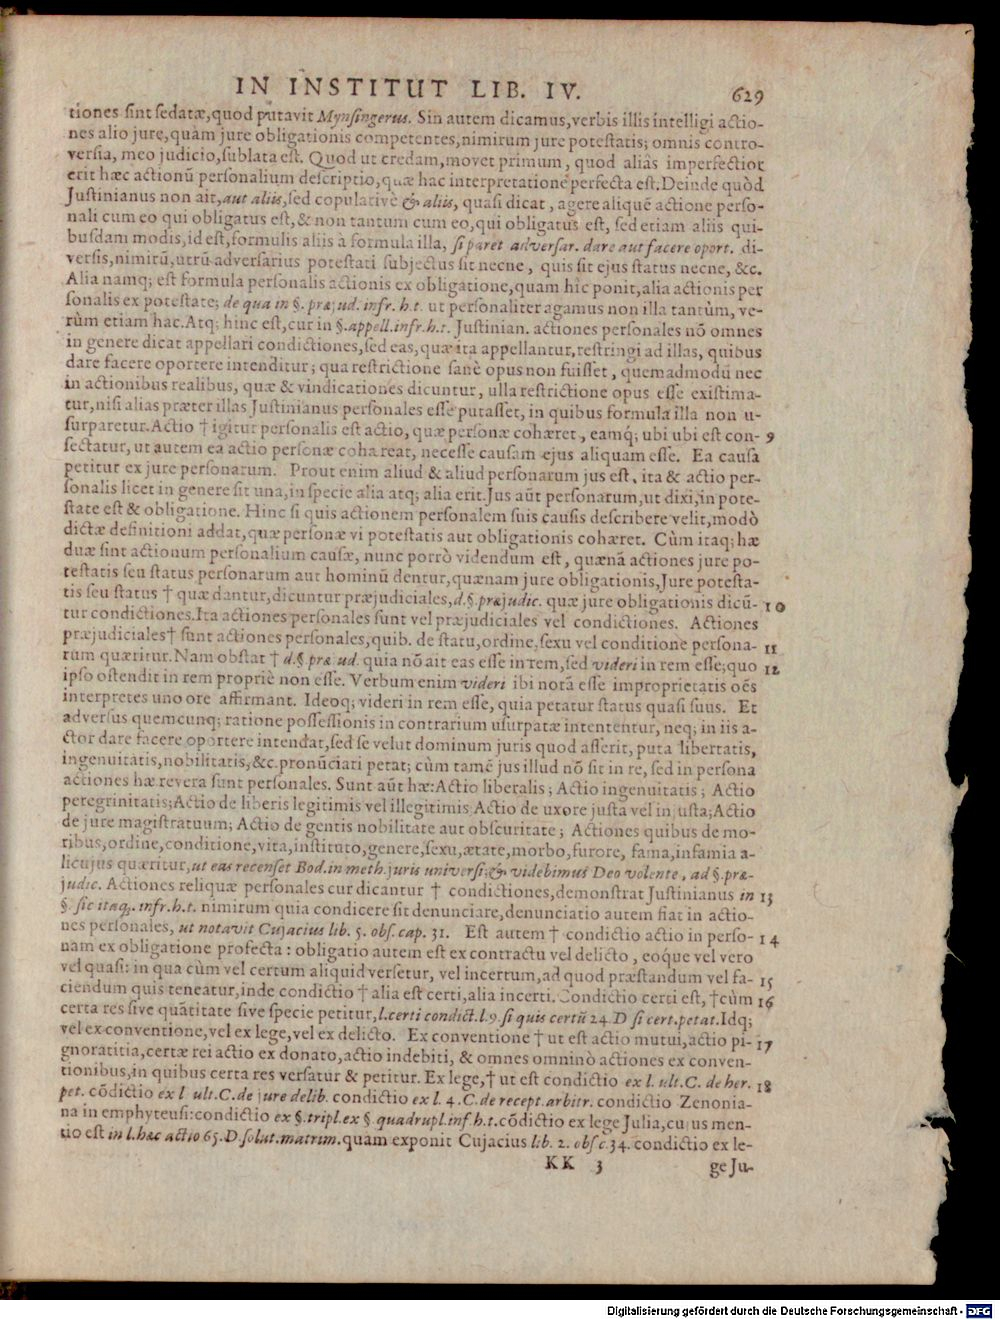 IN INSTITUT LIB. IV. 629
tiones sint sedatæ,quod putavit Mynsingerus. Sin autem dicamus,verbis illis intelligi actio-
nes alio jure,quàm jure obligationis competentes,nimirum jure potestatis; omnis contro-
versia, meo judicio,sublata est. Quod ut credam,movet primum, quod aliàs imperfectior
erit hæc actionũ personalium descriptio,quæ hac interpretatione perfecta est.Deinde quòd
Justinianus non ait,aut aliis,sed copulativè & aliis, quasi dicat, agere aliquẽ actione perso-
nali cum eo qui obligatus est,& non tantum cum eo,qui obligatus est, sed etiam aliis qui-
busdam modis,id est,formulis aliis à formula illa, si paret adversar. dare aut facere oport. di-
versis,nimirũ,utrũ adversarius potestati subjectus sit necne, quis sit ejus status necne, &c.
Alia namq; est formula personalis actionis ex obligatione,quam hic ponit,alia actionis per
sonalis ex potestate; de qua in §. præjud. infr. h.t. ut personaliter agamus non illa tantùm, ve-
rùm etiam hac.Atq; hinc est,cur in §.appell.infr.h.t. Justinian. actiones personales nõ omnes
in genere dicat appellari condictiones,sed eas,quæ ita appellantur,restringi ad illas, quibus
dare facere oportere intenditur; qua restrictione sanè opus non fuisset, quemadmodũ nec
in actionibus realibus, quæ & vindicationes dicuntur, ulla restrictione opus esse existima-
tur,nisi alias præter illas Justinianus personales esse putasset, in quibus formula illa non u-
surparetur.Actio † igitur personalis est actio, quæ personæ cohæret, eamq́; ubi ubi est con- 9
sectatur, ut autem ea actio personæ cohæreat, necesse causam ejus aliquam esse. Ea causa
petitur ex jure personarum. Prout enim aliud & aliud personarum jus est, ita & actio per-
sonalis licet in genere sit una,in specie alia atq; alia erit.Jus aũt personarum,ut dixi,in pote-
state est & obligatione. Hinc si quis actionem personalem suis causis describere velit,modò
dictæ definitioni addat,quæ personæ vi potestatis aut obligationis cohæret. Cùm itaq; hæ
duæ sint actionum personalium causæ, nunc porrò videndum est, quænã actiones jure po-
testatis seu status personarum aut hominũ dentur,quænam jure obligationis,Jure potesta-
tis seu status † quæ dantur,dicuntur præjudiciales,d.§.præjudic. quæ jure obligationis dicũ- 10
tur condictiones.Ita actiones personales sunt vel præjudiciales vel condictiones. Actiones
præjudiciales† sunt actiones personales,quib. de statu,ordine,sexu vel conditione persona- 11
rum quæritur.Nam obstat † d.§.præjud. quia nõ ait eas esse in rem,sed videri in rem esse;quo 12
ipso ostendit in rem propriè non esse. Verbum enim videri ibi notã esse improprietatis oẽs
interpretes uno ore affirmant. Ideoq; videri in rem esse, quia petatur status quasi suus. Et
adversus quemcunq; ratione possessionis in contrarium usurpatæ intententur, neq; in iis a-
ctor dare facere oportere intendat,sed se velut dominum juris quod asserit, puta libertatis,
ingenuitatis,nobilitatis,&c.pronũciari petat; cùm tamẽ jus illud nõ sit in re, sed in persona
actiones hæ revera sunt personales. Sunt aũt hæ:Actio liberalis; Actio ingenuitatis; Actio
peregrinitatis;Actio de liberis legitimis vel illegitimis Actio de uxore justa vel injusta;Actio
de jure magistratuum; Actio de gentis nobilitate aut obscuritate; Actiones quibus de mo-
ribus,ordine,conditione,vita,instituto,genere,sexu,ætate,morbo,furore, fama,infamia a-
licujus quæritur,ut eas recenset Bod.in meth.juris universi;& videbimus Deo volente, ad §.præ-
judic. Actiones reliquæ personales cur dicantur † condictiones,demonstrat Justinianus in 13
§. sic itaq. infr.h.t. nimirum quia condicere sit denunciare,denunciatio autem fiat in actio-
nes personales, ut notavit Cujacius lib. 5. obs. cap. 31. Est autem † condictio actio in perso- 14
nam ex obligatione profecta: obligatio autem est ex contractu vel delicto, eoque vel vero
vel quasi: in qua cùm vel certum aliquid versetur, vel incertum,ad quod præstandum vel fa- 15
ciendum quis teneatur,inde condictio † alia est certi,alia incerti.Condictio certi est, †cùm 16
certa res sive quãtitate sive specie petitur,l.certi condict.l.9.si quis certũ 24 D si cert.petat.Idq;
vel ex conventione,vel ex lege,vel ex delicto. Ex conventione † ut est actio mutui,actio pi- 17
gnoratitia,certæ rei actio ex donato,actio indebiti, & omnes omninò actiones ex conven-
tionibus,in quibus certa res versatur & petitur. Ex lege,† ut est condictio ex l. ult.C. de her. 18
pet. cõdictio ex l ult.C.de jure delib. condictio ex l. 4.C.de recept.arbitr. condictio Zenonia-
na in emphyteusi:condictio ex §.tripl.ex §.quadrupl.inf.h.t.cõdictio ex lege Julia,cujus men-
tio est in l.hæc actio 65.D.solut.matrim.quam exponit Cujacius lib. 2. obs c.34. condictio ex le-
KK 3 ge Ju-
Digitalisierung gefördert durch die Deutsche Forschungsgemeinschaft - DFG